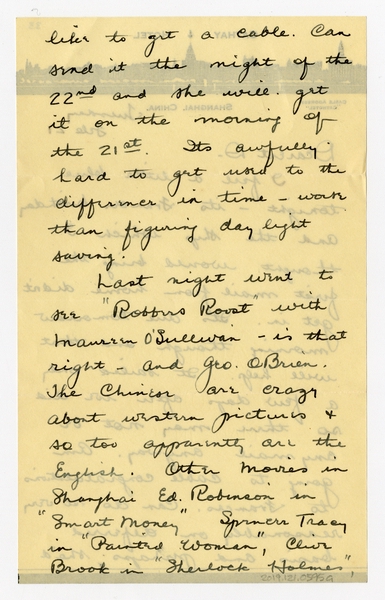 like to get a cable. Can
send it the night of the
22nd and she will get
it on the morning of
the 21st. Its awfully
hard to get used to the
difference in time – work
than figuring day light
saving.
Last night went to
see "Robbers Roost" with
Maureen O'Sullivan – is that
right – and Geo. O'Brien.
The Chinese are crazy
about western pictures &
so too apparently are the
English. Other Movies in
Shanghai Ed. Robinson in
"Smart Money" Spencer Tracy
in "Painted Woman", Clive
Brook in "Sherlock Holmes",
2019.121.0595G